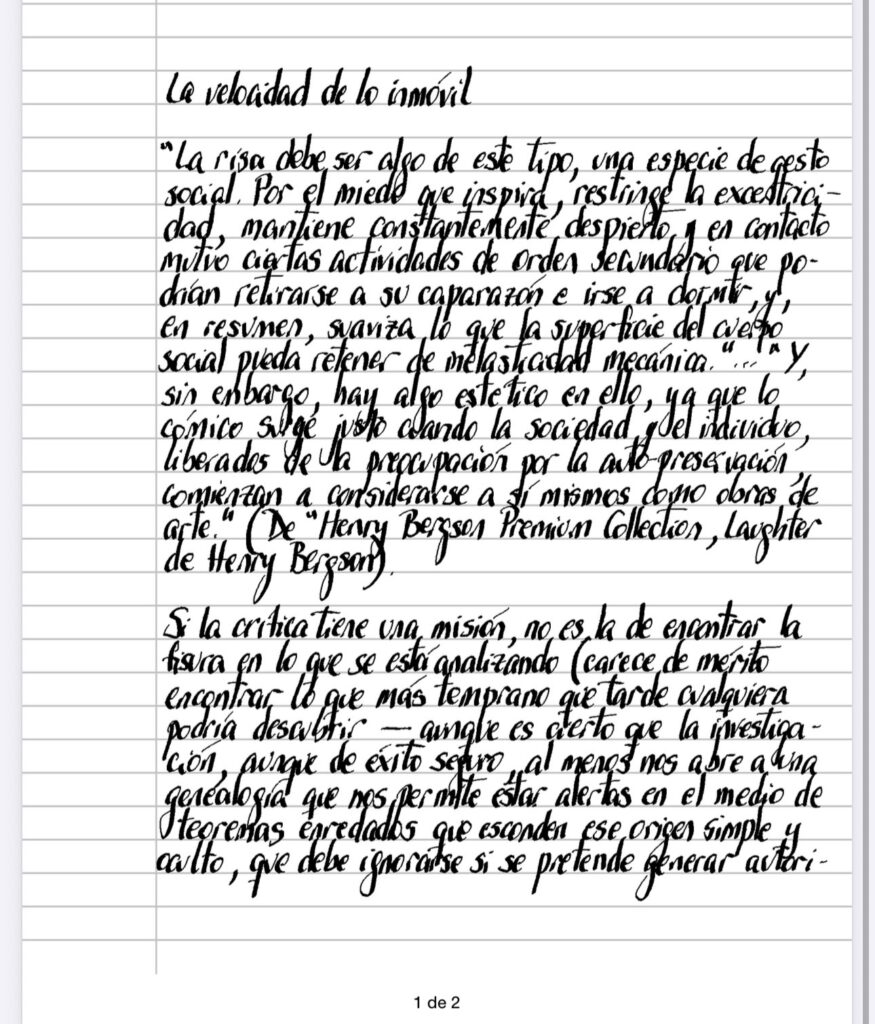 La velocidad de lo inmóvil
"La risa debe ser algo de este tipo, una especie de gesto
social. Por el miedo que inspira, restringe la excentrici-
dad, mantiene constantemente despierto y en contacto
mutuo ciertas actividades de orden secundario que po-
drían retirarse a su caparazón e irse a dormir, y,
en resumen, suaviza lo que la superficie del cuerpo
social pueda retener de inelasticidad mecánica." ... "Y,
sin embargo, hay algo estético en ello, ya que lo
cómico surge justo cuando la sociedad y el individuo,
liberados de la preocupación por la auto-preservación,
comienzan a considerarse a sí mismos como obras de
arte." (De "Henry Bergson Premium Collection, Laughter
de Henry Bergson).
Si la crítica tiene una misión, no es la de encontrar la
fisura en lo que se está analizando (carece de mérito
encontrar lo que más temprano que tarde cualquiera
podría descubrir — aunque es cierto que la investiga-
ción, aunque de éxito seguro, al menos nos abre a una
genealogía que nos permite estar alertas en el medio de
teoremas enredados que esconden ese origen simple y
oculto, que debe ignorarse si se pretende generar autori-
1 de 2